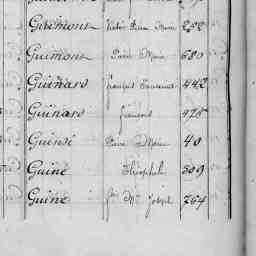 Guimont Victor Pierre Marie 252
Guimont Pierre Marie 680
Guinard François 442
Guinard François 475
Guinsé Pierre Marie 40
Guiné Théophile 309
Guiné Jn Me Joseph 264